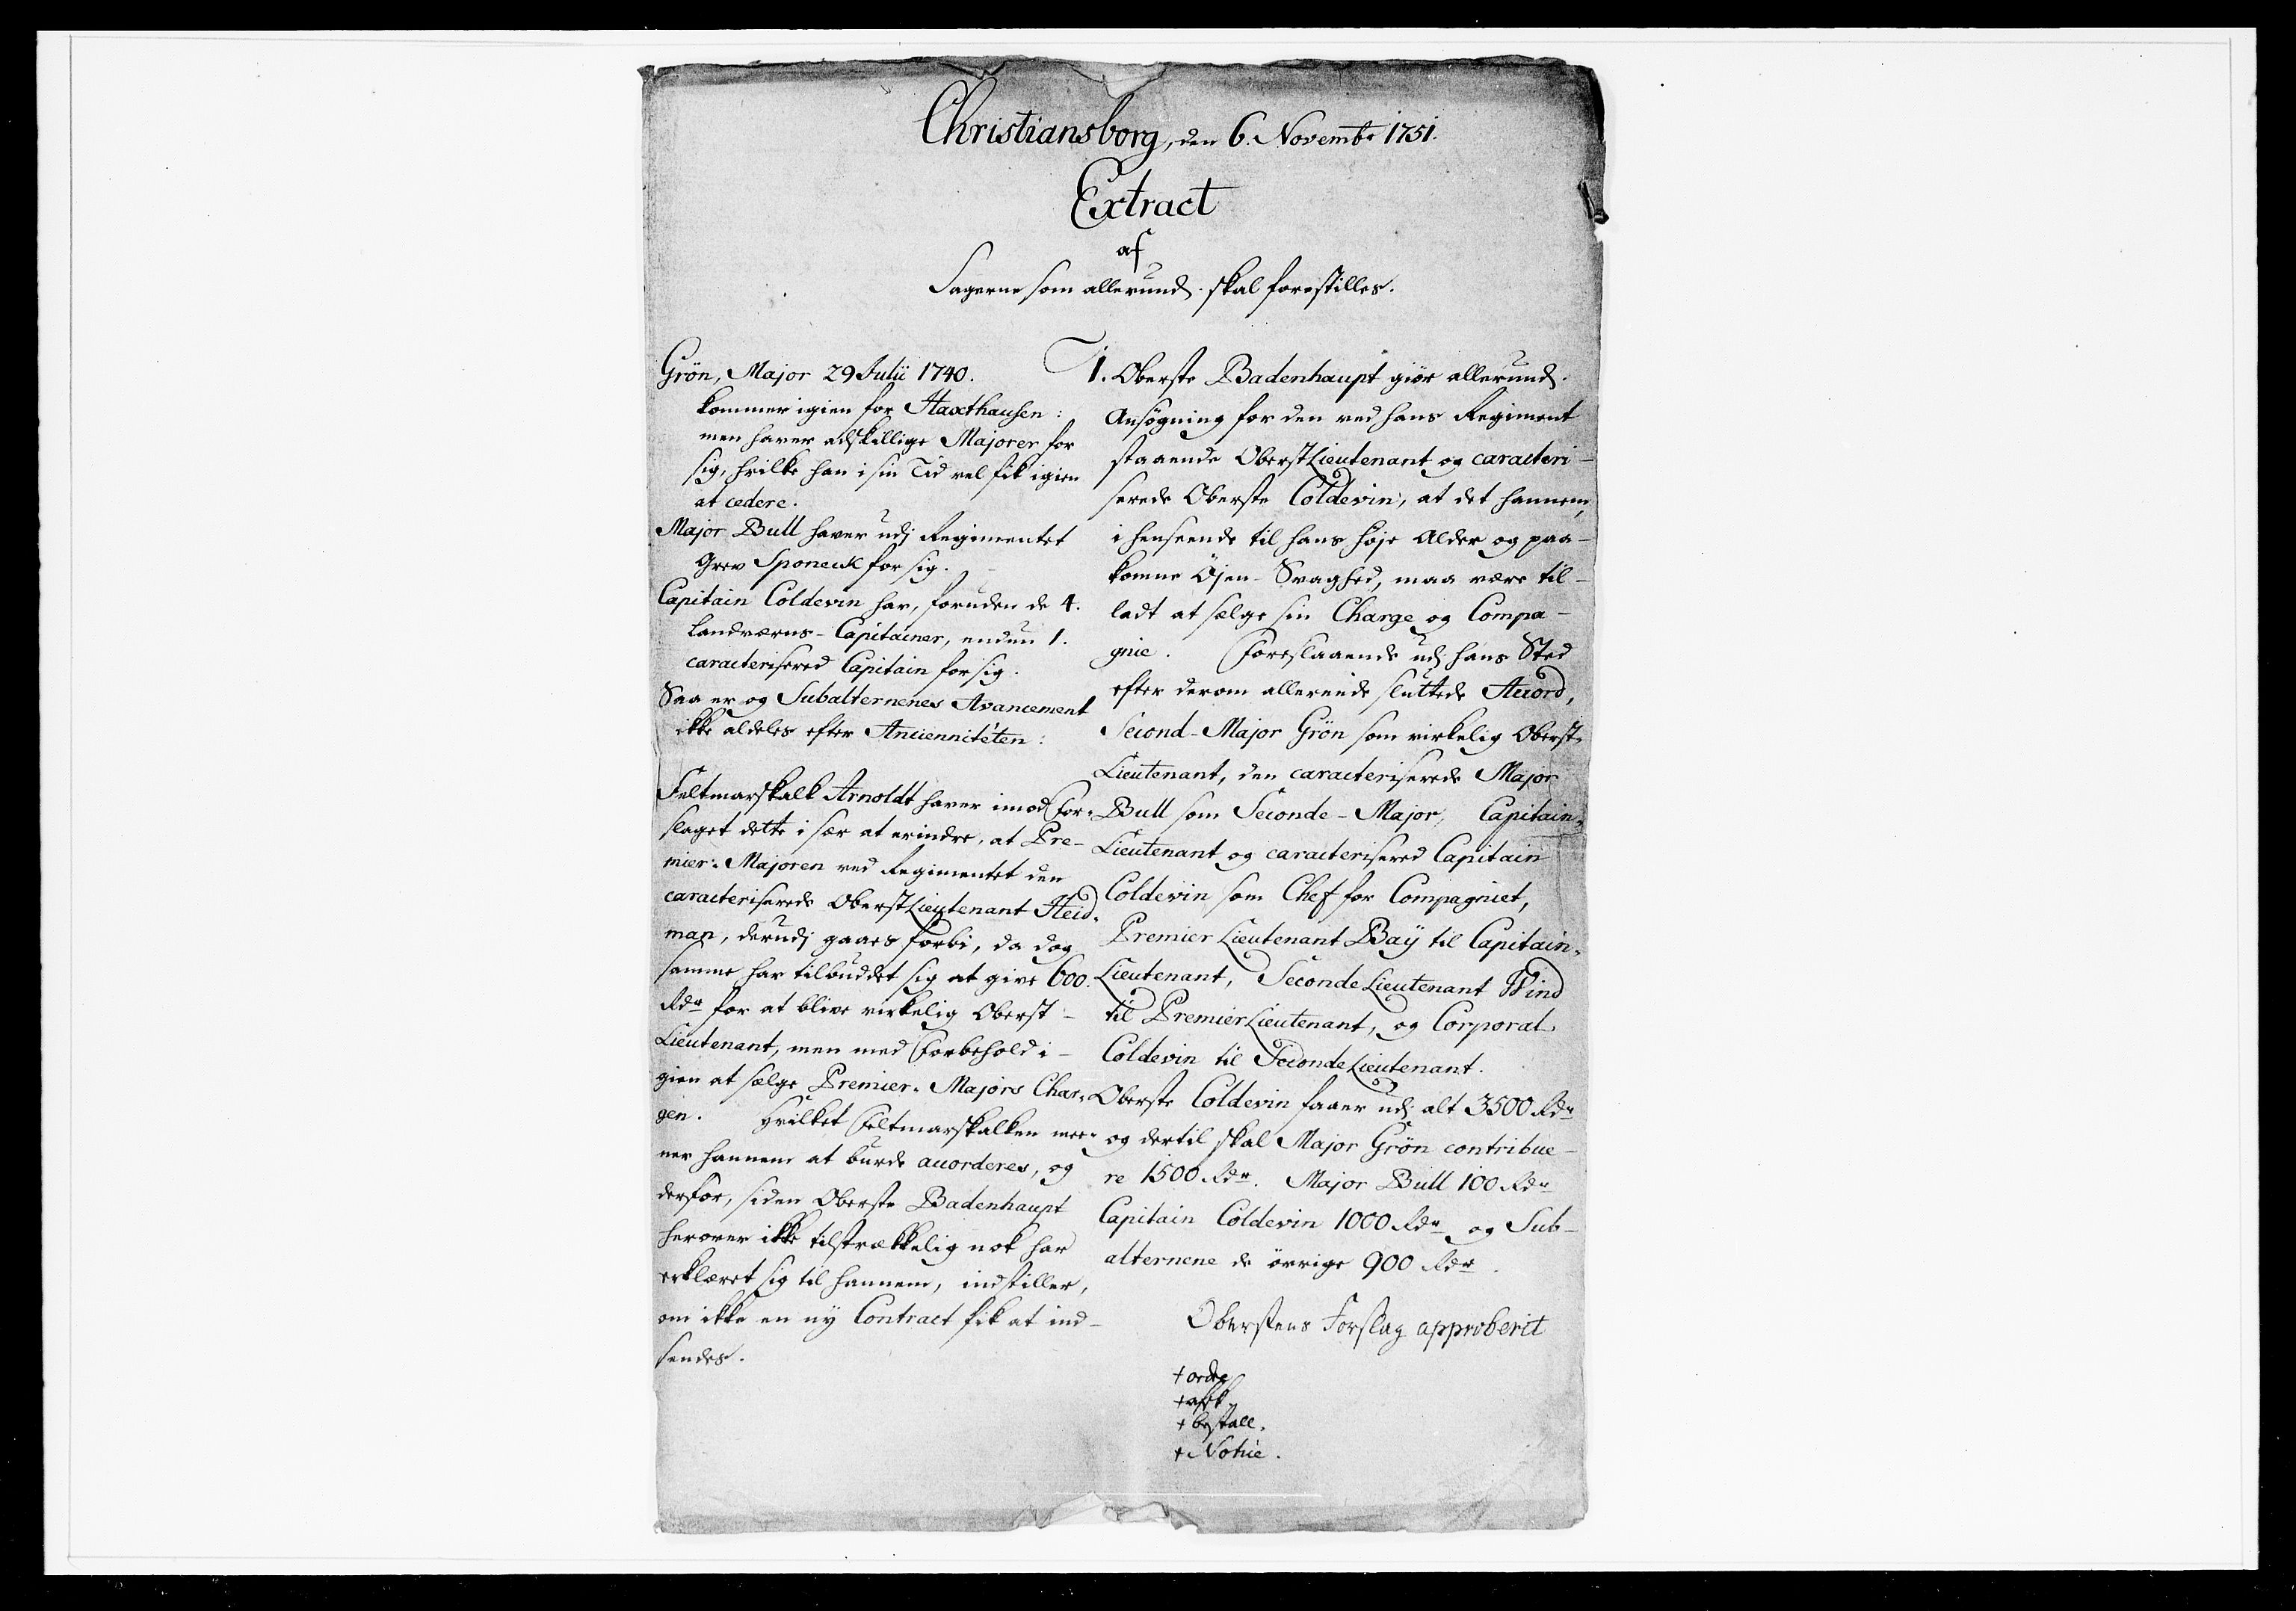 Christiansborg, den 6. Novembr 1751.
Extract
af
Sagerne som allerund. skal forestilles.
Grön, Major 29 Julii 1740.
kommer igien for Haxthausen:
men haver adskillige Majorer for
sig, hvilke han i sin Tid vel fik igien
at cedere.
Major Bull haver udj Regimentet
Grev Sponeck for sig.
Capitain Coldevin har, foruden de 4.
Landværns-Capitainer, endnu 1.
caracteriseret Capitain for sig.
Saa er og Subalternenes Avancement
ikke aldeles efter Anciennitéten:
Feltmarskalk Arnoldt haver imod For-
slaget dette i sær at erindre, at Pre-
mier-Majoren ved Regimentet den
caracteriserede OberstLieutenant Heid-
man, derudj gaaes forbi, da dog
samme har tilbuddet sig at give 600.
Rdr for at blive virkelig Oberst-
Lieutenant, men med Forbehold i-
gien at sælge Premier-Majors Char-
gen. Hvilket Feltmarskalken mee-
ner hannem at burde accorderes, og
derfor, siden Oberste Badenhaupt
herover ikke tilstrækkelig nok har
erklæret sig til hannem, indstiller,
om ikke en ny Contract fik at ind-
sendes.
1. Oberste Badenhaupt giør allerund.
Ansøgning for den ved hans Regiment
staaende OberstLieutenant og caracteri-
serede Oberste Coldevin, at det hannem,
i henseende til hans høje Alder og paa-
komne Øjen-Svaghed, maa være til-
ladt at sælge sin Charge og Compa-
gnie. Foreslaaende udj hans Sted
efter derom allereede sluttede Accord,
Second-Major Grön som virkelig Oberst-
Lieutenant, den caracteriserede Major
Bull som Seconde-Major, Capitain-
Lieutenant og caracteriseret Capitain
Coldevin som Chef for Compagniet,
Premier Lieutenant Baÿ til Capitain-
Lieutenant, SecondeLieutenant Wind
til PremierLieutenant, og Corporal
Coldevin til SecondeLieutenant.
Oberste Coldevin faaer udj alt 3500 Rdr
og dertil skal Major Grön contribue-
re 1500 Rdr. Major Bull 100 Rdr
Capitain Coldevin 1000 Rdr og Sub-
alternene de øvrige 900 Rdr.
Oberstens Forslag approberit
+ ordre
+ afsk.
+ bestall.
+ Notice.